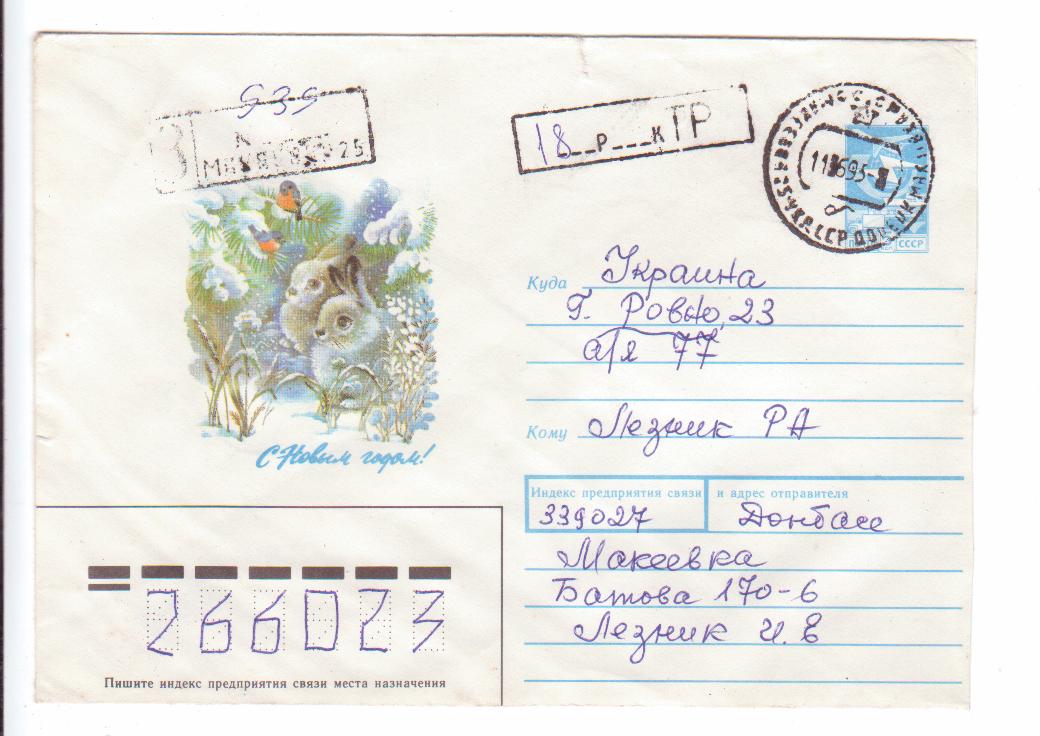 939
З
25
18 р к ТР
СССР
Куда Украина
г. Ровно, 23
а/я 77
Кому Лезник РА
С Новым годом!
Индекс предприятия связи и адрес отправителя
339027 Донбасс
Макеевка
Батова 170-6
Лезник И.Е
266023
Пишите индекс предприятия связи места назначения